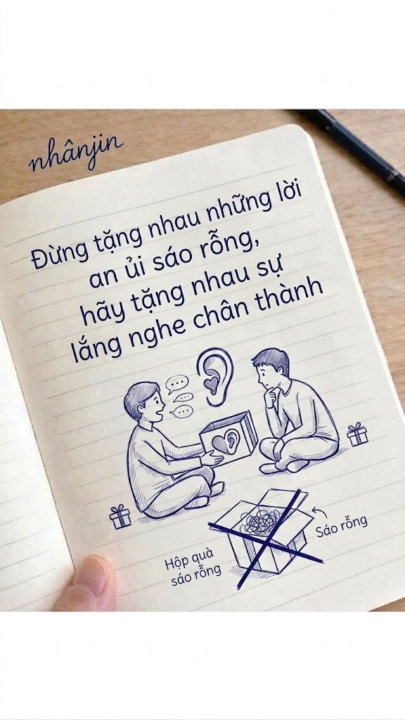 nhânjin
Đừng tặng nhau những lời
an ủi sáo rỗng,
hãy tặng nhau sự
lắng nghe chân thành
Sáo rỗng
Hộp quà
sáo rỗng